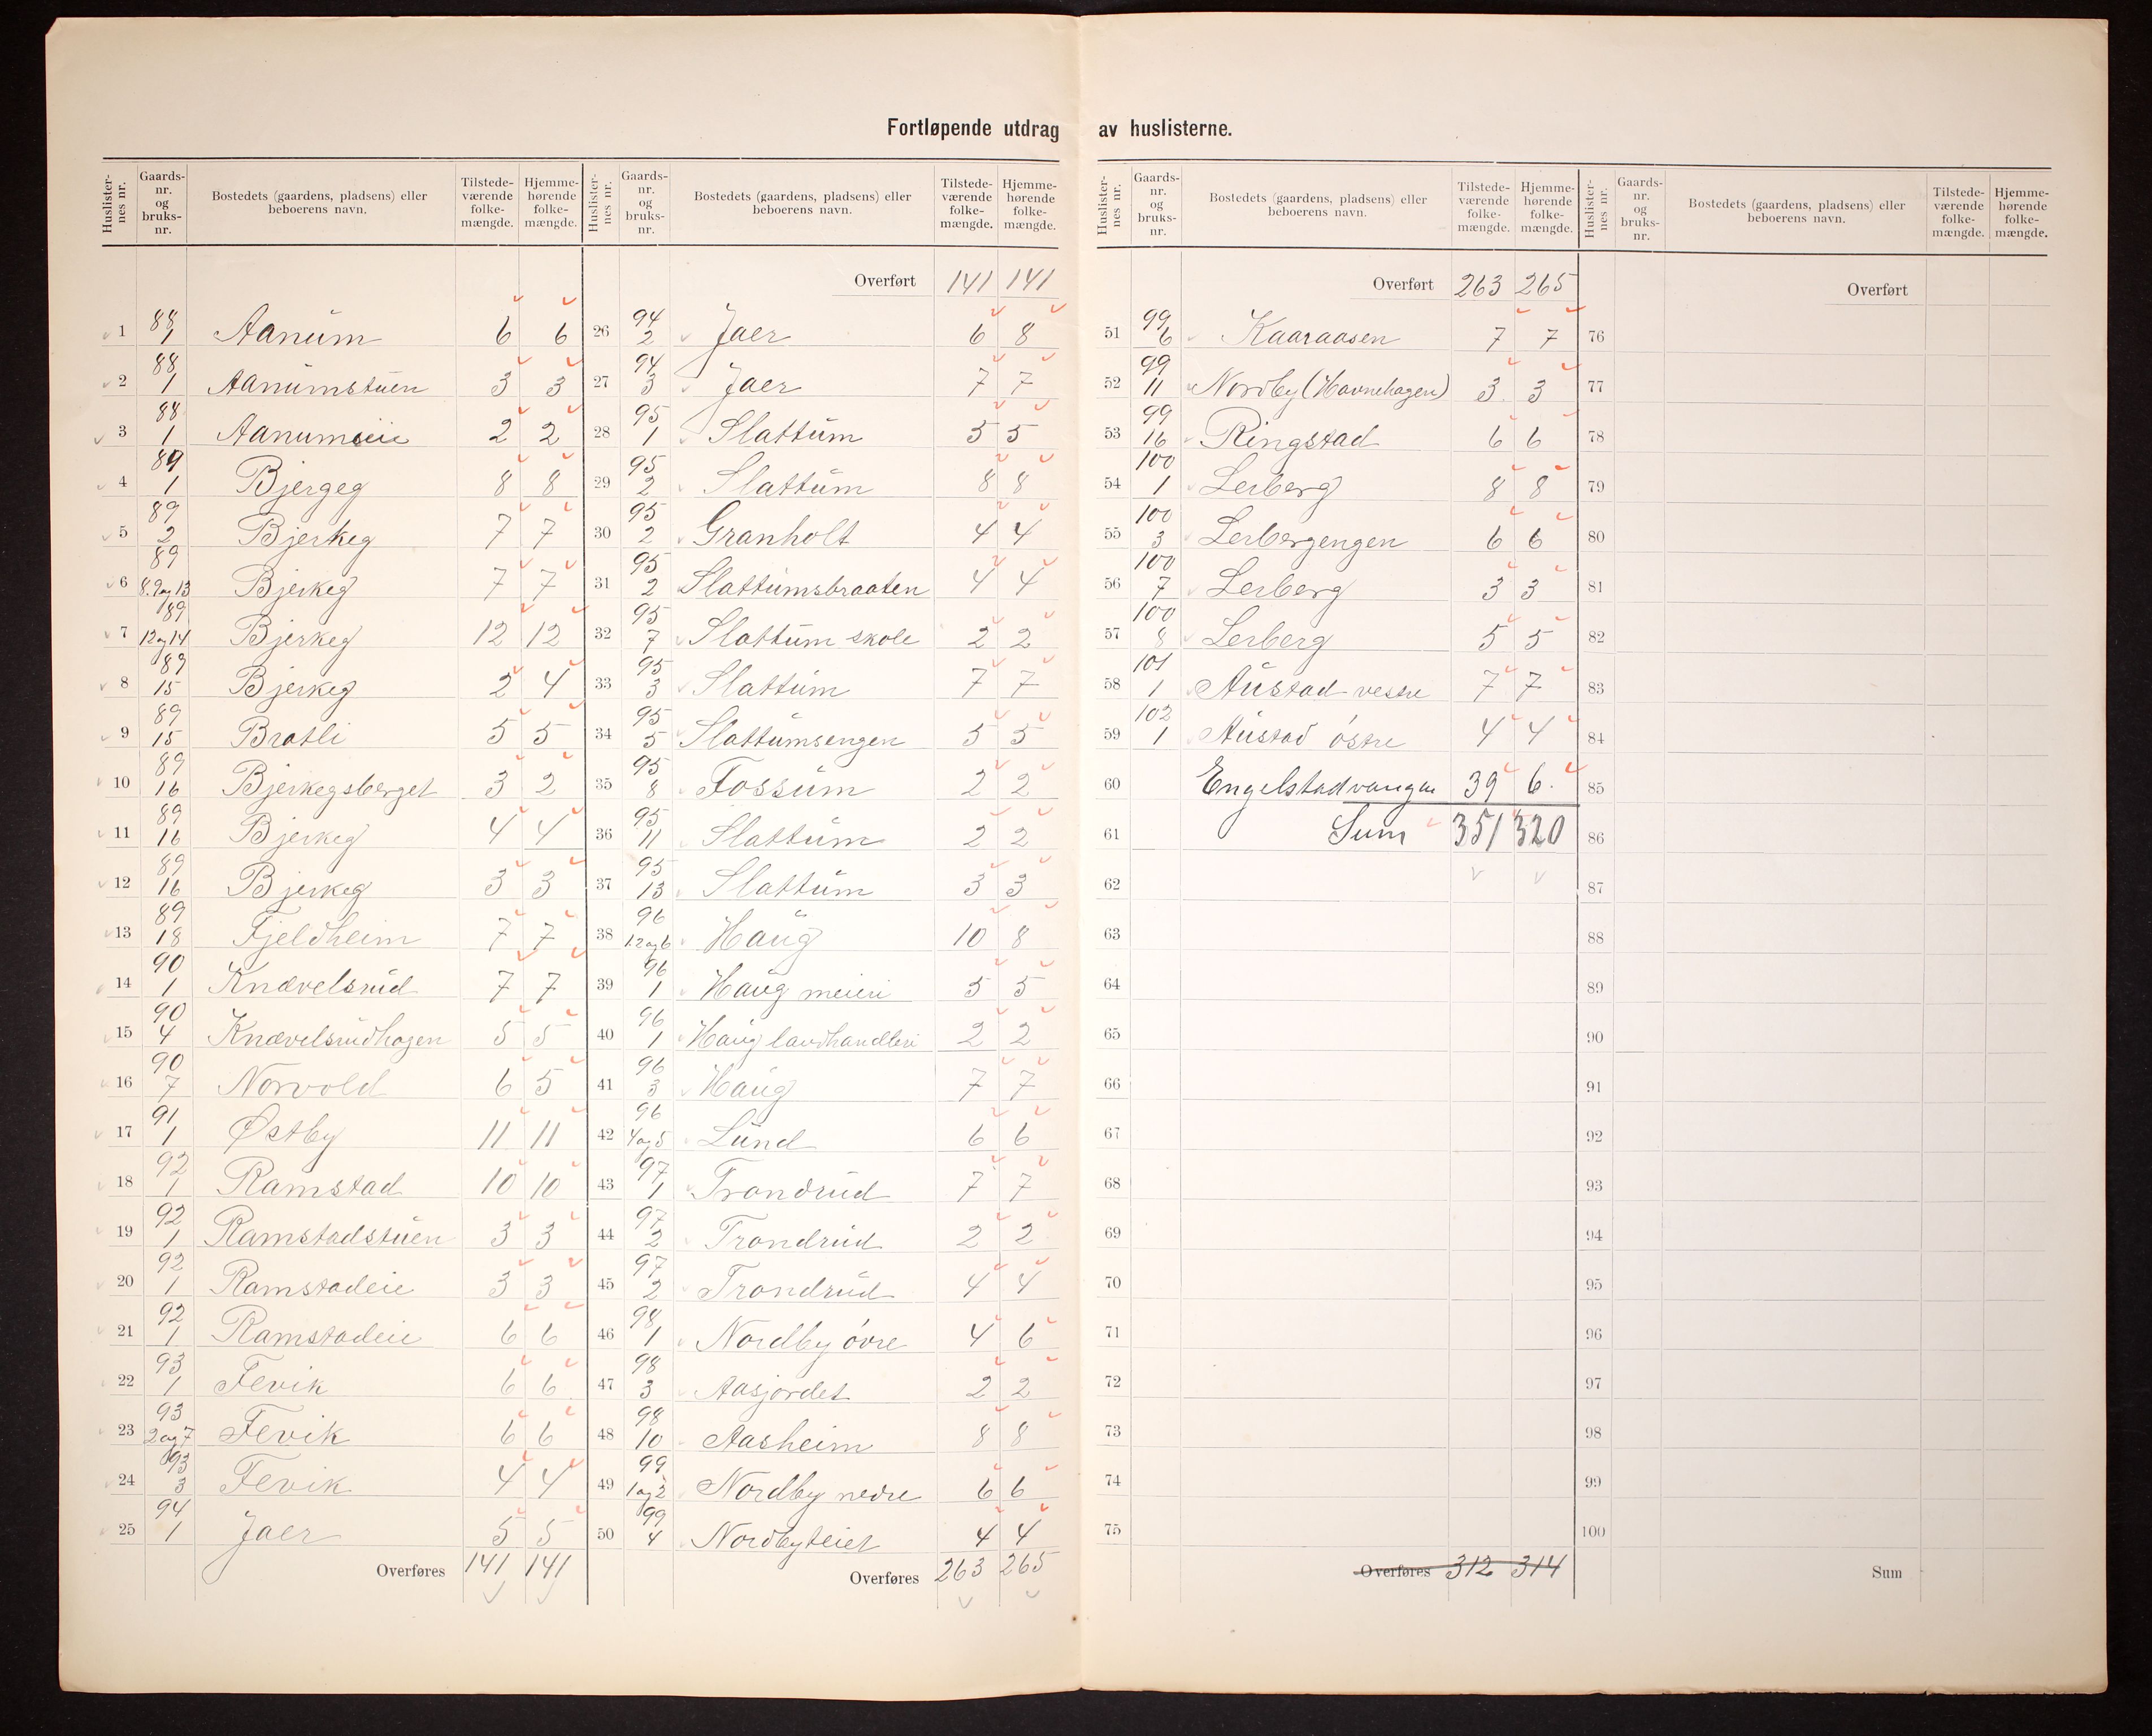 Fortløpende utdrag av huslisterne.
Huslisternes nr. Gaards-nr. og bruks-nr. Bostedets (gaardens, pladsens) eller beboerens navn. Tilstedeværende folkemængde. Hjemmehørende folkemængde.
1 88 1 Aanum 6 6
2 88 1 Aanumstuen 3 3
3 88 1 Aanumeie 2 2
4 89 1 Bjergeg 8 8
5 89 2 Bjerkeg 7 7
6 89 8.9 og 13 Bjerkeg 7 7
7 89 12 og 14 Bjerkeg 12 12
8 89 15 Bjerkeg 2 4
9 89 15 Bratli 5 5
10 89 16 Bjerkegsberget 3 2
11 89 16 Bjerkeg 4 4
12 89 16 Bjerkeg 3 3
13 89 18 Fjeldheim 7 7
14 90 1 Knævelsrud 7 7
15 90 4 Knævelsrudhagen 5 5
16 90 7 Norvold 6 5
17 91 1 Østby 11 11
18 92 1 Ramstad 10 10
19 92 1 Ramstadstuen 3 3
20 92 1 Ramstadeie 3 3
21 92 1 Ramstadeie 6 6
22 93 1 Fevik 6 6
23 93 2 og 7 Fevik 6 6
24 93 3 Fevik 4 4
25 94 1 Jaer 5 5
Overføres 141 141
Huslisternes nr. Gaards-nr. og bruks-nr. Bostedets (gaardens, pladsens) eller beboerens navn. Tilstedeværende folkemængde. Hjemmehørende folkemængde.
Overført 141 141
26 94 2 Jaer 6 8
27 94 3 Jaer 7 7
28 95 1 Slattum 5 5
29 95 2 Slattum 8 8
30 95 2 Granholt 4 4
31 95 2 Slattumsbraaten 4 4
32 95 7 Slattum skole 2 2
33 95 3 Slattum 7 7
34 95 5 Slattumsengen 5 5
35 95 8 Fossum 2 2
36 95 11 Slattum 2 2
37 95 13 Slattum 3 3
38 96 1.2 og 6 Haug 10 8
39 96 1 Haug meieri 5 5
40 96 1 Haug landhandleri 2 2
41 96 3 Haug 7 7
42 96 4 og 5 Lund 6 6
43 97 1 Trondrud 7 7
44 97 2 Trondrud 2 2
45 97 2 Trondrud 4 4
46 98 1 Nordby övre 4 6
47 98 3 Aasjordet 2 2
48 98 10 Aasheim 8 8
49 99 1 og 2 Nordby nedre 6 6
50 99 4 Nordbyteiet 4 4
Overføres 263 265
Huslisternes nr. Gaards-nr. og bruks-nr. Bostedets (gaardens, pladsens) eller beboerens navn. Tilstedeværende folkemængde. Hjemmehørende folkemængde.
Overført 263 265
51 99 6 Kaaraasen 7 7
52 99 11 Nordby (Havnehagen) 3 3
53 99 16 Ringstad 6 6
54 100 1 Lerberg 8 8
55 100 3 Lerbergengen 6 6
56 100 7 Lerberg 3 3
57 100 8 Lerberg 5 5
58 101 1 Austad vestre 7 7
59 102 1 Austad östre 4 4
60 Engelstadvangen 39 6.
61 Sum 351 320
62
63
64
65
66
67
68
69
70
71
72
73
74
75
Overføres 312 314
Huslisternes nr. Gaards-nr. og bruks-nr. Bostedets (gaardens, pladsens) eller beboerens navn. Tilstedeværende folkemængde. Hjemmehørende folkemængde.
Overført
76
77
78
79
80
81
82
83
84
85
86
87
88
89
90
91
92
93
94
95
96
97
98
99
100
Sum